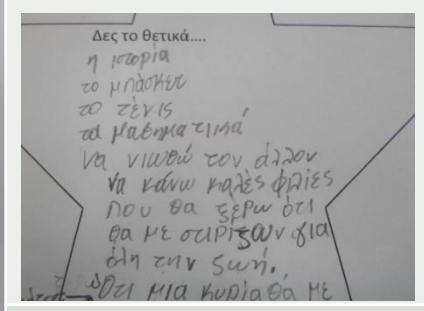 Δες το θετικά....
η ιστορία
το μπάσκετ
το τένις
τα μαθηματικά
Να νιωθώ τον άλλον
να κάνω καλές φιλίες
που θα ξέρω ότι
θα με στιρίζουν για
όλη την ζωή.
Ότι μια κυρία θά με